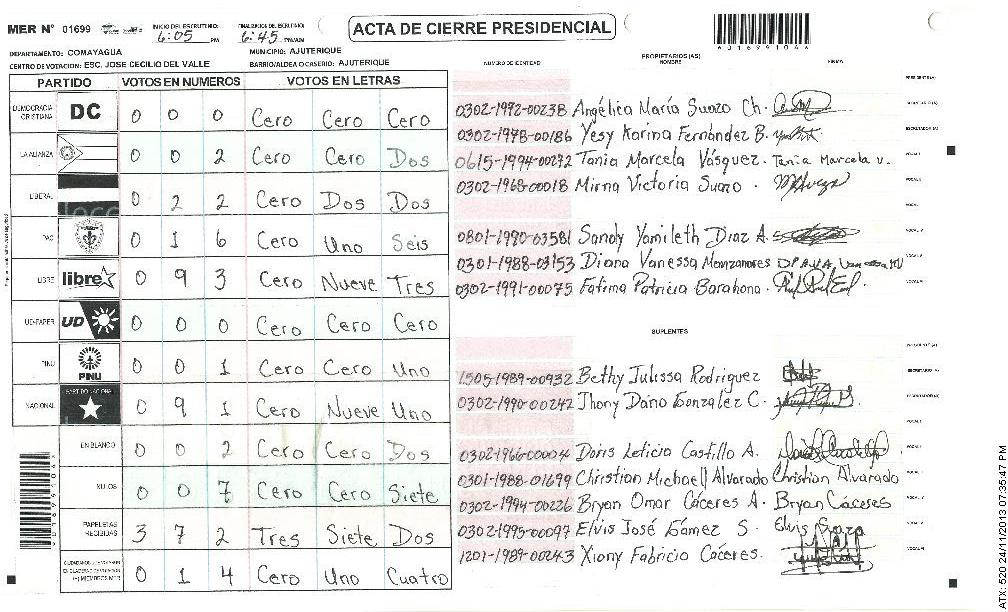 MER Nº 01699 INICIO DEL ESCRUTINIO: 6:05 PM FINALIZACION DEL ESCRUTINIO: 6:45 PM/AM ACTA DE CIERRE PRESIDENCIAL
DEPARTAMENTO: COMAYAGUA MUNICIPIO: AJUTERIQUE
CENTRO DE VOTACION: ESC. JOSE CECILIO DEL VALLE BARRIO/ALDEA O CASERIO: AJUTERIQUE
PARTIDO VOTOS EN NUMEROS VOTOS EN LETRAS
DEMOCRACIA CRISTIANA DC 0 0 0 Cero Cero Cero
LA ALIANZA 0 0 2 Cero Cero Dos
LIBERAL 0 2 2 Cero Dos Dos
PAC 0 1 6 Cero Uno Seis
LIBRE libre 0 9 3 Cero Nueve Tres
UD-FAPER UD 0 0 0 Cero Cero Cero
PINU PINU 0 0 1 Cero Cero Uno
NACIONAL PARTIDO NACIONAL 0 9 1 Cero Nueve Uno
EN BLANCO 0 0 2 Cero Cero Dos
NULOS 0 0 7 Cero Cero Siete
PAPELETAS RECIBIDAS 3 7 2 Tres Siete Dos
0 1 4 Cero Uno Cuatro
NUMERO DE IDENTIDAD PROPIETARIOS (AS) NOMBRE FIRMA
PRESIDENTE (A)
0302-1992-00238 Angélica María Suazo Ch. SECRETARIO (A)
0302-1978-00186 Yesy Karina Fernández B. ESCRUTADOR (A)
0615-1994-00272 Tania Marcela Vásquez. Tania Marcela V. VOCAL I
0302-1968-00018 Mirna Victoria Suazo. VOCAL II
0801-1990-03581 Sandy Yamileth Díaz A.
0301-1988-03153 Diana Vanessa Manzanares
0302-1991-00075 Fatima Patricia Barahona.
SUPLENTES
PRESIDENTE (A)
1505-1989-00932 Bethy Julissa Rodriguez SECRETARIO (A)
0302-1990-00242 Jhony Dario González C. ESCRUTADOR (A)
0302-1966-00004 Doris Leticia Castillo A.
0301-1988-01699 Christian Michaell Alvarado Christian Alvarado
0302-1994-00226 Bryan Omar Cáceres A. Bryan Cáceres
0302-1995-00097 Elvis José Gámez S.
1201-1989-00243 Xiony Fabricio Cáceres.
ATX: 520 24/11/2013 07:35:47 PM